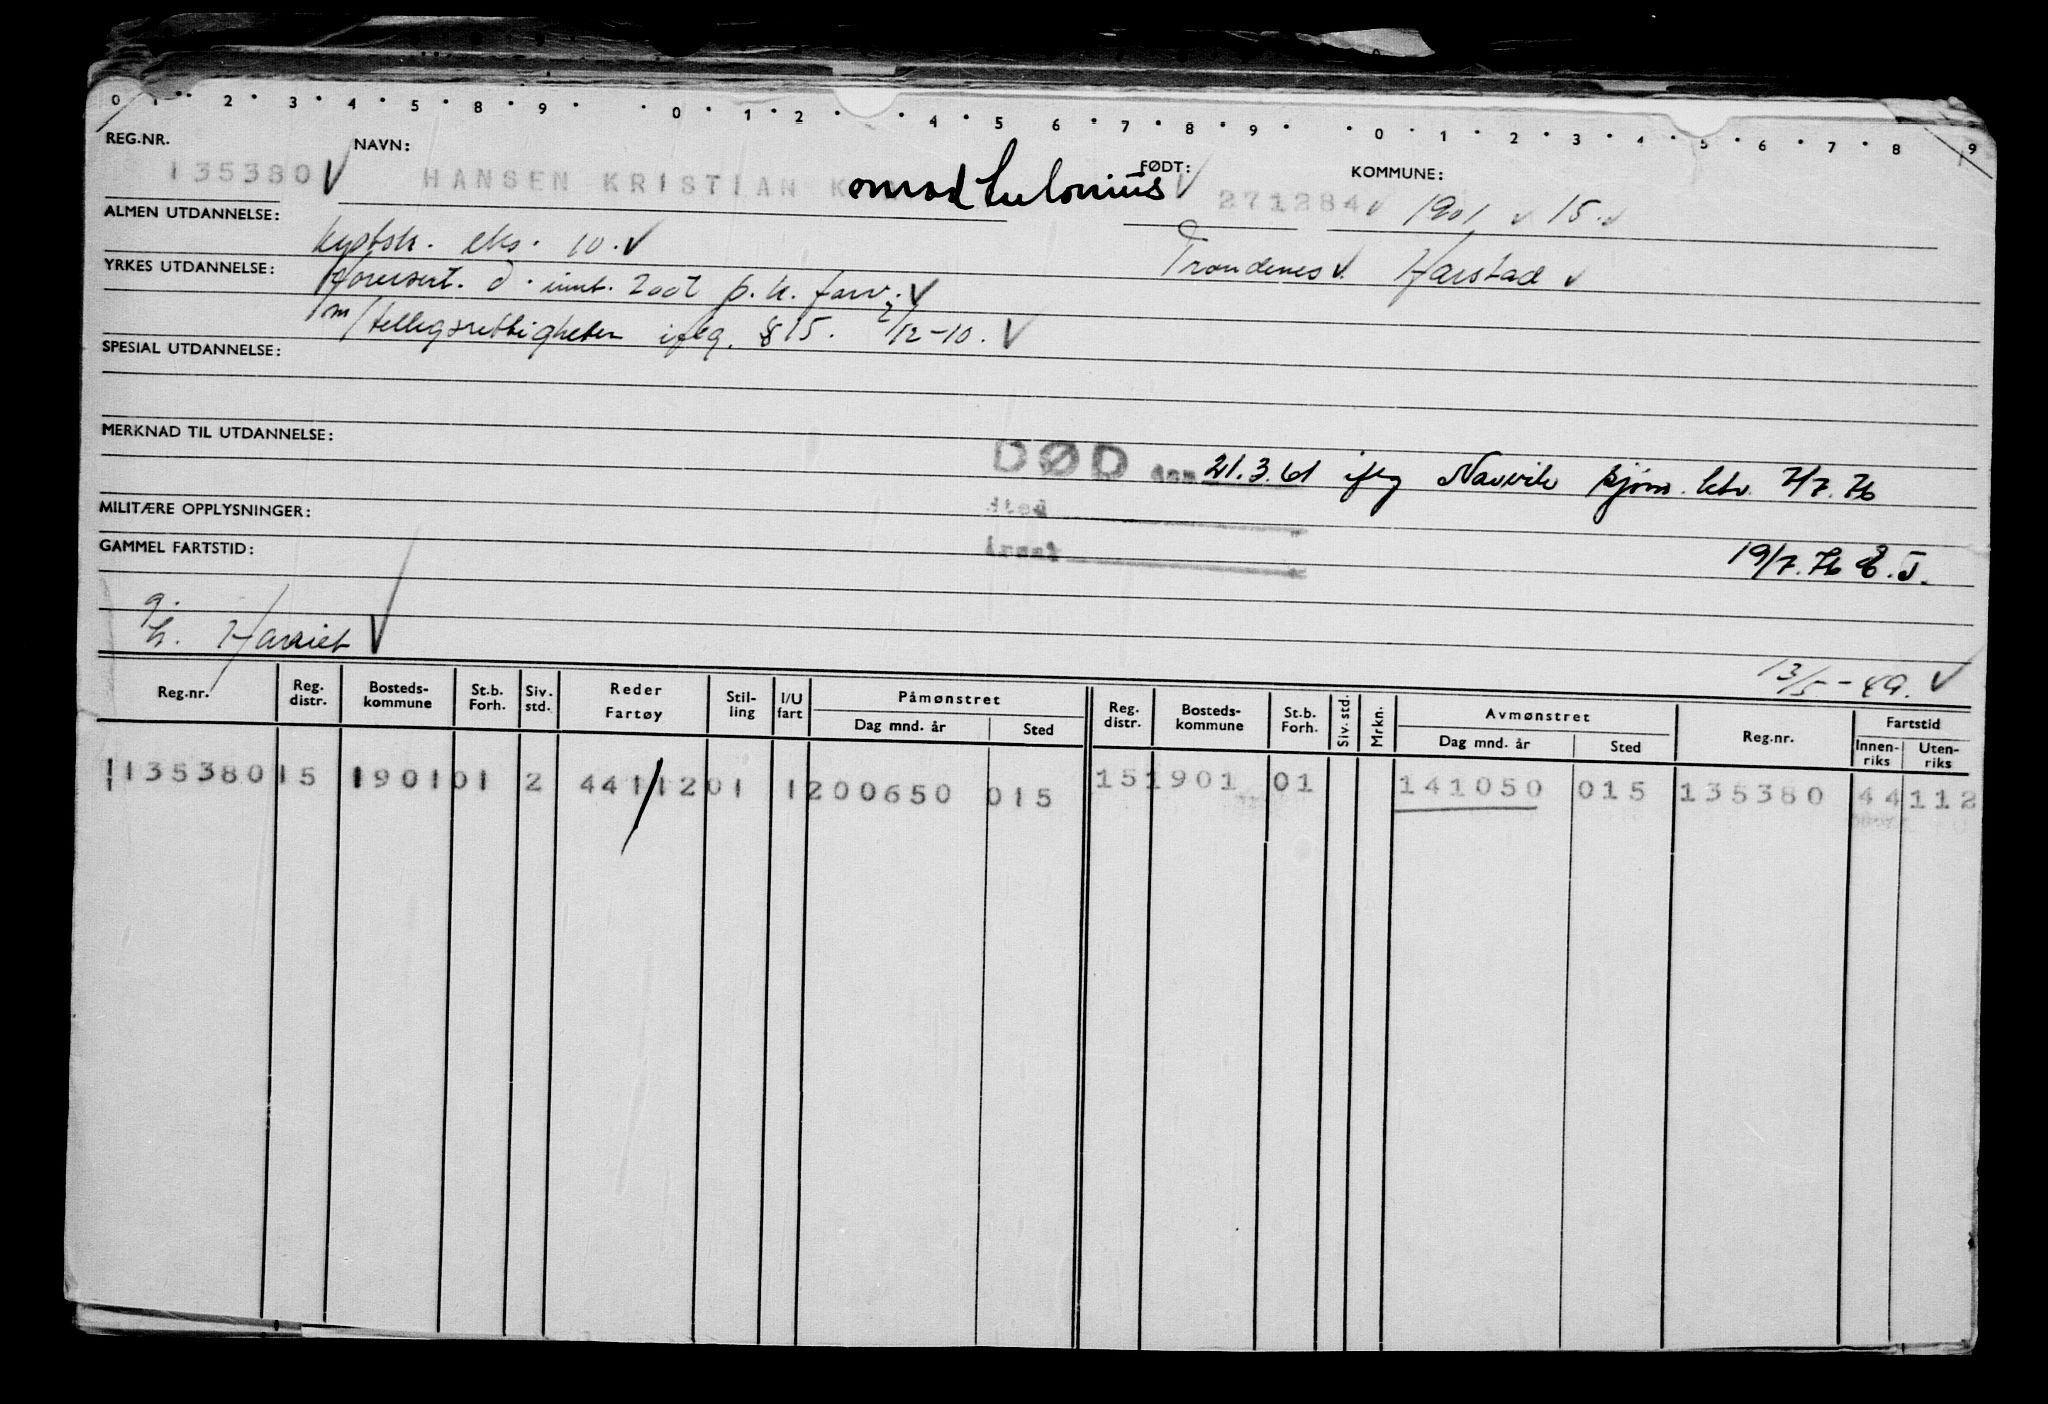 0 1 2 3 4 5 6 8 9 0 1 2 4 5 6 7 8 9 0 1 2 3 4 5 6 7 8 9
REG.NR. NAVN: FØDT: KOMMUNE:
135380 HANSEN KRISTIAN K 271284 1901 15.
ALMEN UTDANNELSE: kystsk. eks. 10. Trondenes Harstad
YRKES UTDANNELSE:
m/ ifølg. § 15. 2/12-10.
SPESIAL UTDANNELSE:
MERKNAD TIL UTDANNELSE:
DØD den 21.3.61 ifølg Narvik sjøm. ktr. 7/7.76
Sted
MILITÆRE OPPLYSNINGER:
Årsak
GAMMEL FARTSTID: 19/7.76 E.J.
g.
h. Harriet
13/5-49.
Reg.nr. Reg. distr. Bosteds-kommune St.b. Forh. Siv. std. Reder Fartøy Stil-ling I/U fart Påmønstret Dag mnd. år Sted Reg. distr. Bosteds-kommune St.b. Forh. Siv. std. Mrkn. Avmønstret Dag mnd. år Sted Reg.nr. Fartstid Innen-riks Uten-riks
135380 15 1901 01 2 44112 01 1 200650 015 15 1901 01 141050 015 135380 44112